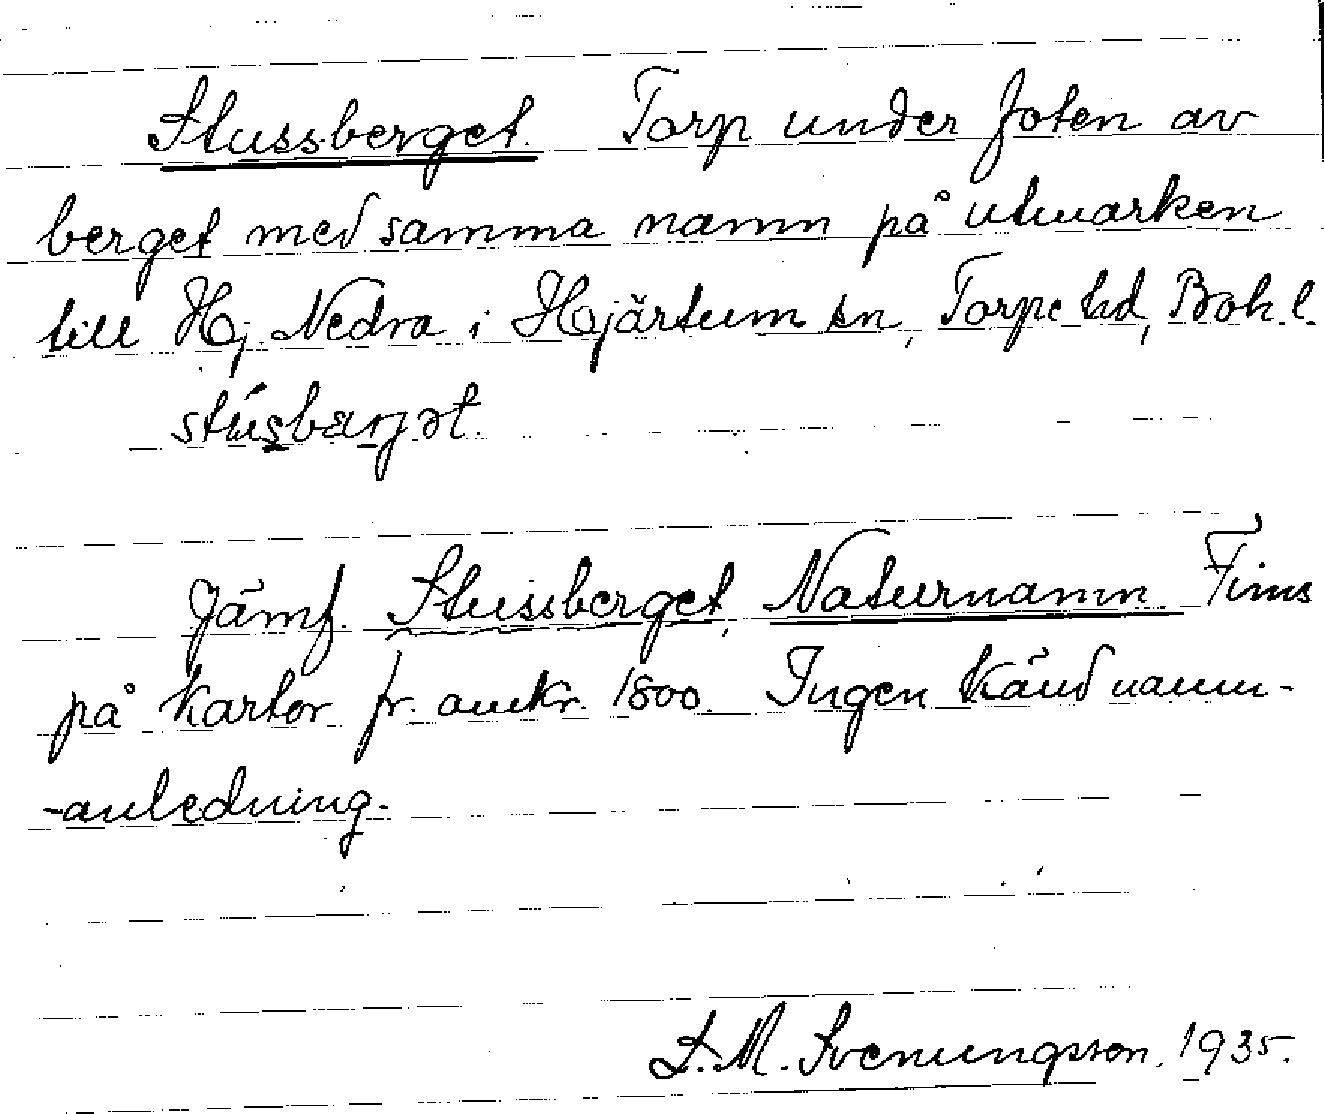 Stussberget. Torp under foten av
berget med samma namn på utmarken
till Hj. Nedra i Hjärtum sn, Torpe hd, Boh l.
stusbærjət.
Jämf. Stussberget, Naturnamn Finns
på kartor fr. omkr. 1800. Ingen känd namn-
-anledning.
L. M. Svenungsson. 1935.